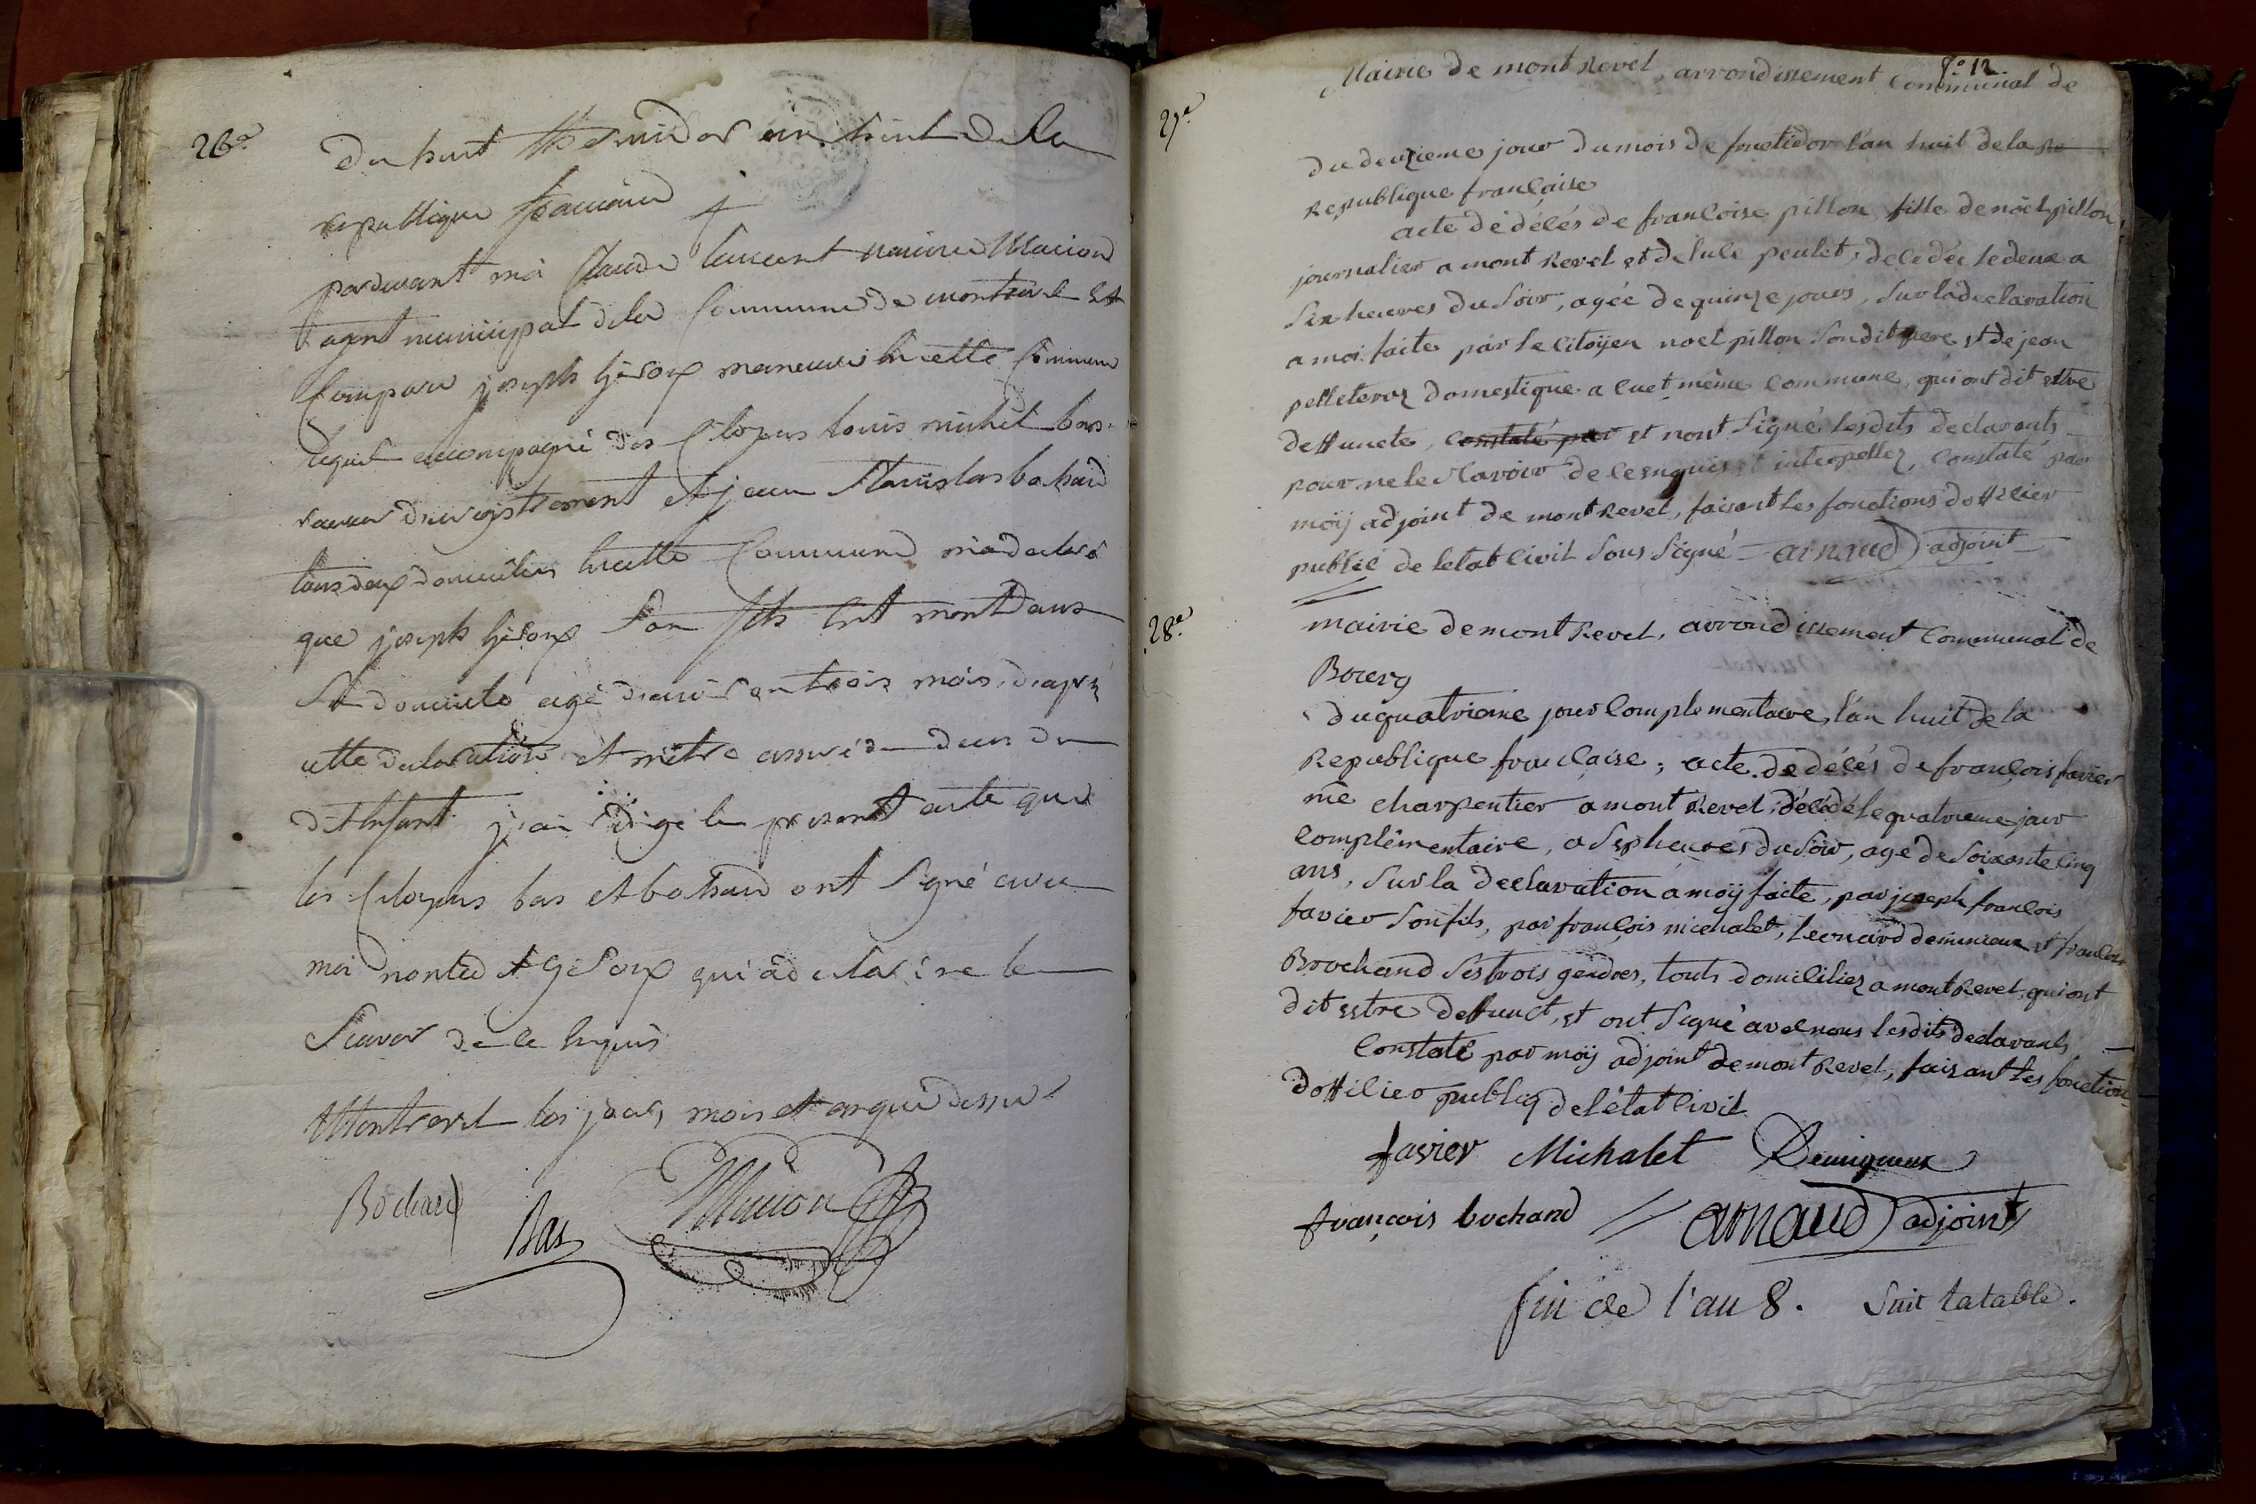 26e
Du huit thermidor an huit de la
republique francaise
pardevant moi Claude laurent marie Marion
agent municipal de la Commune de montrevel Est
Comparu joseph geroux maneuvrier en cette Commune
lequel accompagné des Citoyens louis michel bas
d'enregistrement et jean Stanislas bochard
tous deux domiciliés en cette Commune m'a declaré
que joseph geroux Son fils Est mort dans
St domicile agé d'environ trois mois, d'apres
cette declaration et m'être assuré du deces du
dit Enfant j'ai redigé le present acte que
les Citoyens bas et bochard ont Signé avec
moi non led. geroux qui a declaré ne le
Scavoir de ce Enquis
a Montrevel les jour, mois et an que dessus
Bochard Bas Marion
f.o 12.
Mairie de mont Revel, arrondissement communal de
27e
du deuzieme jour du mois de fructidor l'an huit de la Re
Republique francaise
acte de décés de francoise pillon fille de nöel pillon,
journalier a mont Revel et de lule peulet, décédée le deux a
Six heures du Soir, agée de quinze jours, Sur la declaration
a moi faite par le Citoÿen noel pillon Sondit pere et de jean
pelleteroz domestique a Cuet même Commune, qui ont dit estre
deffuncte, constaté par et n'ont Signé lesdits declarants
pour ne le Scavoir de ce enquis et interpellez, Constaté par
moÿ adjoint de mont Revel, faisant les fonctions d'officier
public de letat Civil Sous Signé arnaud adjoint
28e
mairie de mont Revel, arrondissement Communal de
Bourg
du quatrieme jour Complementaire, l'an huit de la
Republique francaise, acte de décés de françois favier
me charpentier a mont Revel, décédé le quatrieme jour
Complémentaire, a Sept heures du Soir, agé de Soixante Cinq
ans, Sur la declaration a moÿ faite, par joseph francois
favier Son fils, par françois michalet, Leonard demigneux et francois
Brochand Ses trois gendres, touts domiciliez a mont Revel, qui ont
dit estre deffunct, et ont Signé avec nous lesdits declarants
Constaté par moÿ adjoint de mont Revel, faisant les fonction
d'officier publiq de l'état Civil
favier Michalet Demigneux
françois bochand arnaud adjoint
fin de l'an 8. Suit la table.